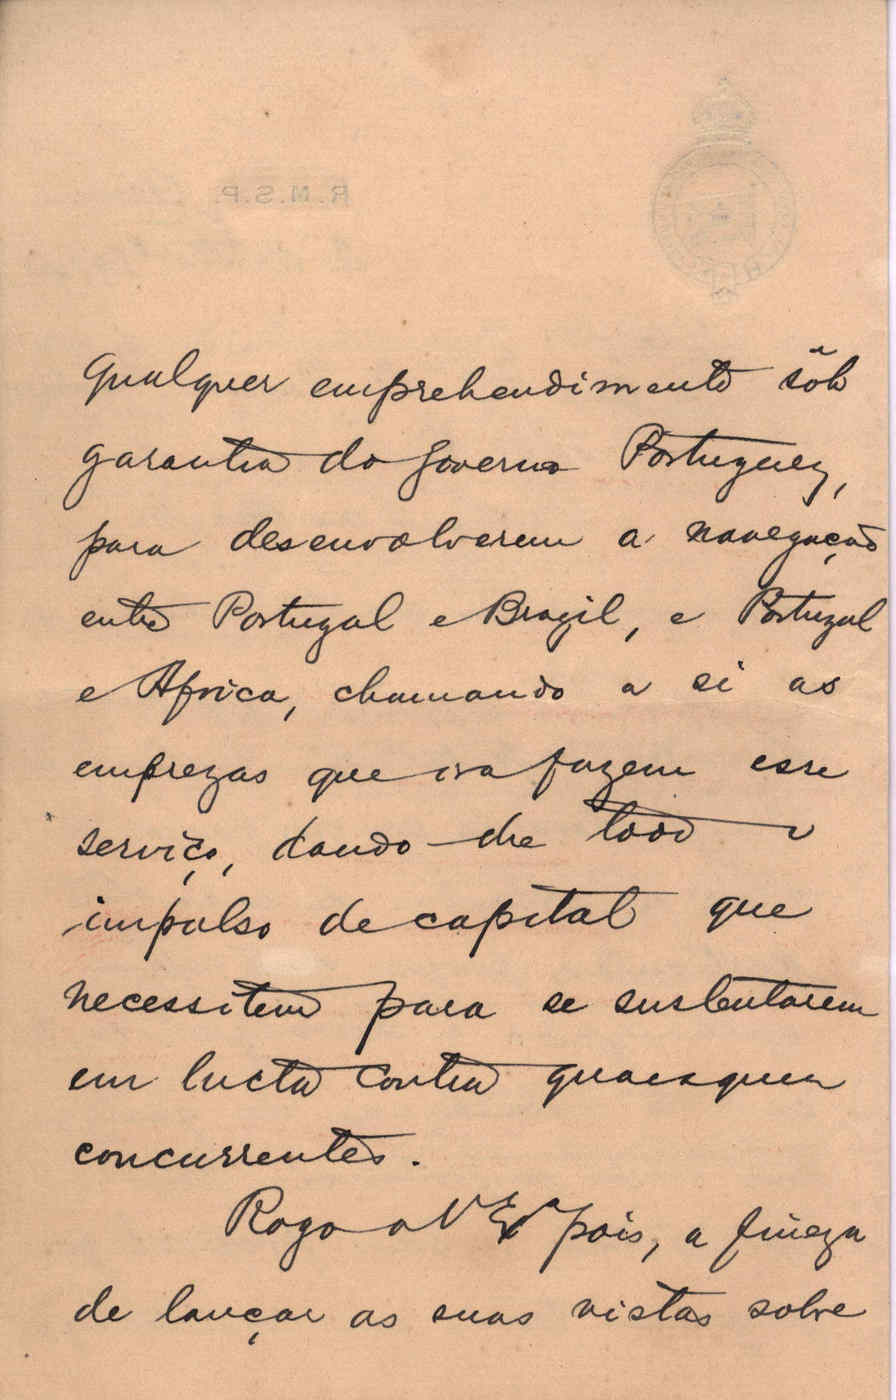 R.M.S.P.
qualquer emprehendimento sõb
garantia do Governo Portuguez,
para desenvolverem a navegação
entre Portugal e Brazil, e Portugal
e Africa, chamando a si as
emprezas que ora fazem esse
serviço, dando-lhe todo o
impulso de capital que
necessitem para se sustentarem
em lucta contra quaesquer
concurrentes.
Rogo a V Exª pois, a fineza
de lançar as suas vistas sobre